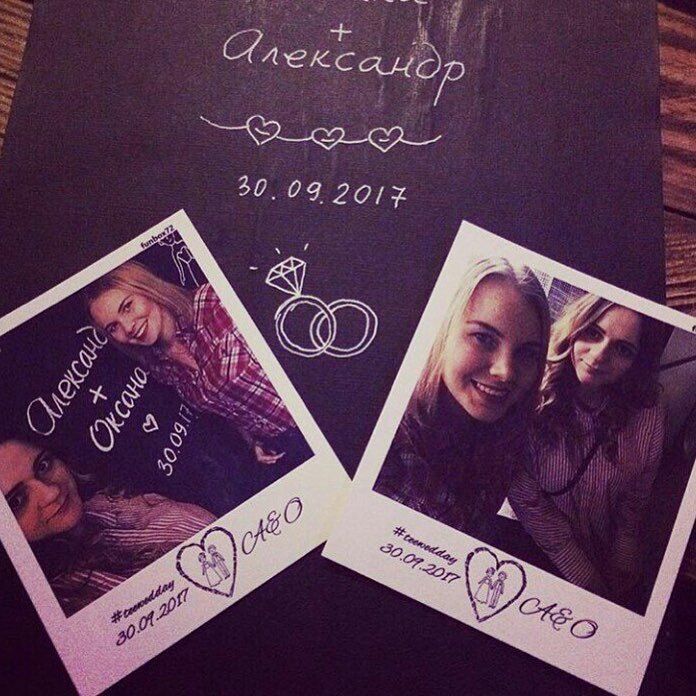 +
Александр
30.09.2017
funbox72
Александ
+
Оксана
30.09.2017
A&O
#teewedday
30.09.2017
#teewedday
30.09.2017
A&O